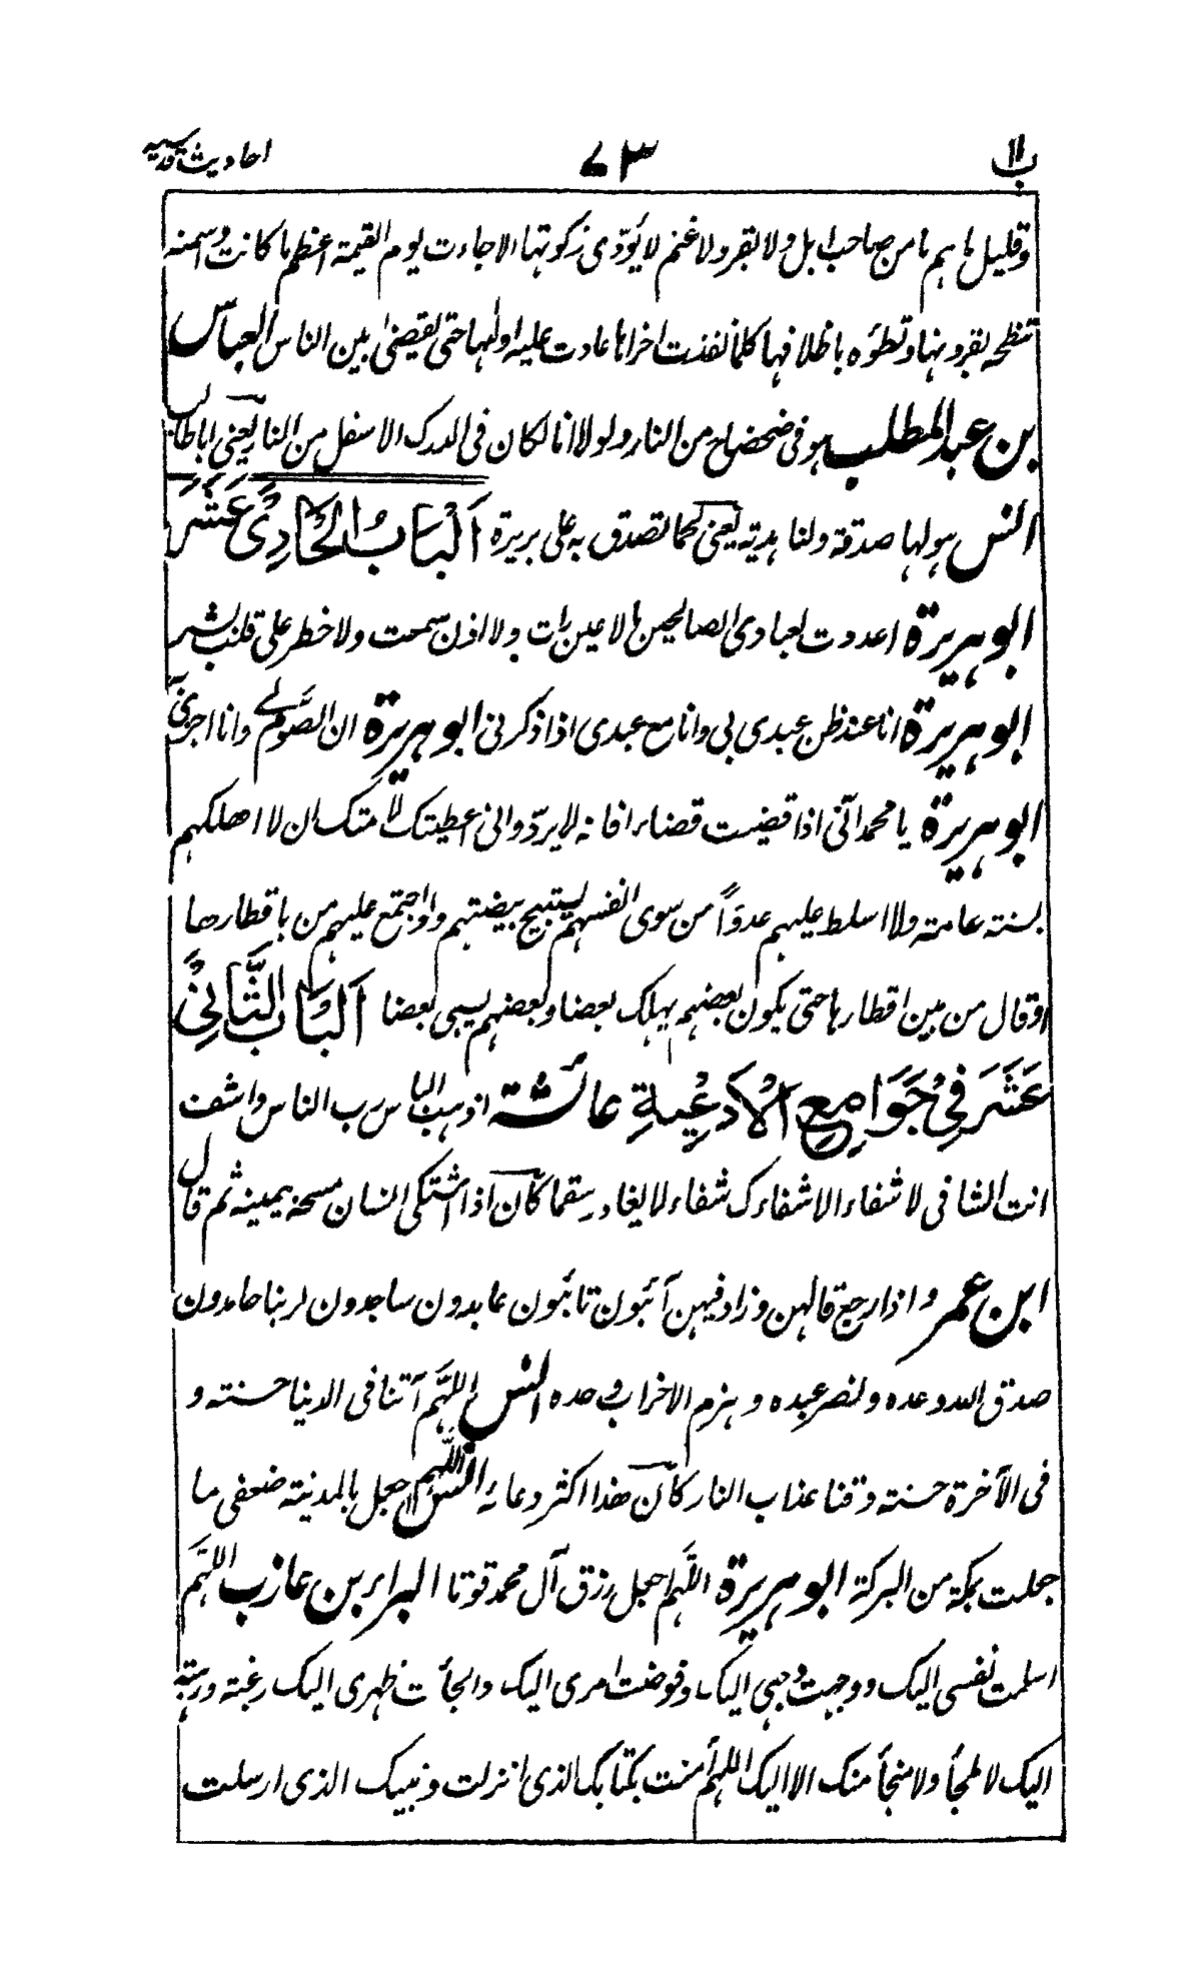 ب ۱۱ ۷۳ احادیث قدسیہ
وقلیل ما ہم ما من صاحب ابل ولا بقر ولا غنم لا یؤدی زکوتہا الا جاءت یوم القیمۃ اعظم ما کانت واسمنہ
تنطحہ بقرونہا وتطؤہ باظلافہا کلما نفذت اخراہا عادت علیہ اولہا حتی یقضیٰ بین الناس العباسؓ
بن عبد المطلب ہو فی ضحضاح من النار ولولا انا لکان فی الدرک الاسفل من النار یعنی اباطالب
انس ہو لہا صدقۃ ولنا ہدیۃ یعنی لحما تصدق بہ علی بریرۃ اَلْبَابُ الْحَادِیْ عَشَرَ
ابو ہریرۃ اعددت لعبادی الصالحین ما لا عین رات ولا اذن سمعت ولا خطر علی قلب بشر
ابو ہریرۃ انا عند ظن عبدی بی وانا مع عبدی اذا ذکرنی ابو ہریرۃ ان الصَّوم لی وانا اجزی بہ
ابو ہریرۃ یا محمد انّی اذا قضیت قضاء فانہ لا یردّ وانی اعطیتک لامتک ان لا اھلکہم
بسنۃ عامۃ ولا اسلط علیہم عدوّاً من سوی انفسہم یستبیح بیضتہم ولو اجتمع علیہم من باقطارھا
او قال من بین اقطارہا حتی یکون بعضہم یہلک بعضا وبعضہم یسبی بعضا اَلْبَابُ الثَّانِیْ
عَشَرَ فِیْ جَوَامِعِ الْاَدْعِیَةِ عائشۃ اذہب الباس رب الناس واشف
انت الشافی لا شفاء الا شفاءک شفاء لا یغادر سقما کان اذا اشتکی انسان مسحہ بیمینہ ثم قال
ابن عمر و اذا رجع قالہن وزاد فیہن آئبون تائبون عابدون ساجدون لربنا حامدون
صدق اللہ وعدہ ونصر عبدہ وہزم الاحزاب وحدہ انس اللہَّم آتنا فی الدنیا حسنۃ و
فی الآخرۃ حسنۃ وقنا عذاب النار کان ھذا اکثر دعائہ انس اللّٰہم اجعل بالمدینۃ ضعفی ما
جعلت بمکۃ من البرکۃ ابو ہریرۃ اللّٰہم اجعل رزق آل محمد قوتا البراء بن عازب اللہَّم
اسلمت نفسی الیک ووجہت وجہی الیک وفوضت امری الیک والجأت ظہری الیک رغبۃ ورہبۃ
الیک لا ملجأ ولا منجأ منک الا الیک اللہم أمنت بکتابک الذی انزلت ونبیک الذی ارسلت